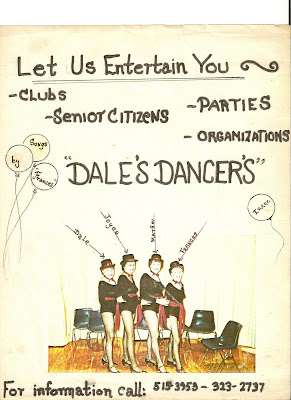 Let Us Entertain You
-Clubs
-Parties
-Senior Citizens
-Organizations
Songs
by
Frances
"Dale's Dancer's"
Dale
Joyce
Frances
For information call: 515-3953 - 323-2737